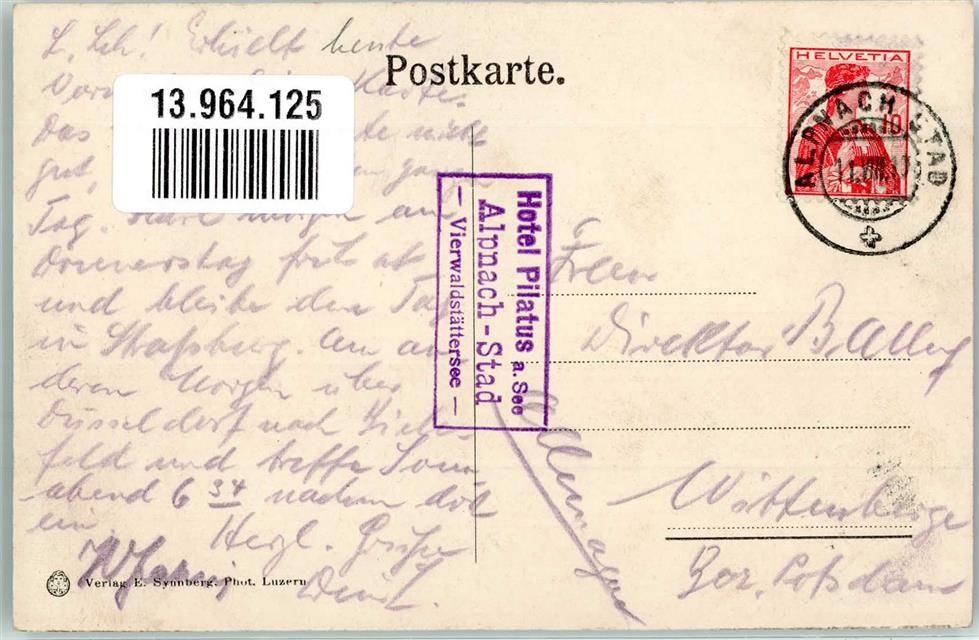 Postkarte.
13.964.125
HELVETIA
10
ALPNACH STAD
Hotel Pilatus a. See
Alpnach-Stad
— Vierwaldstättersee —
L. Erhielt heute
Karte.
Das nicht
gut,
Tag. morgen am
Donnerstag früh ab
und bleibe den Tag
in Straßburg. Am an-
deren Morgen über
Düsseldorf nach
feld und treffe Sonn-
abend 6 34 nachm dort
ein. Herzl. Grüße
Frau
Direktor
Allemagne
Wittenberge
Bez. Potsdam
Verlag E. Synnberg, Phot. Luzern